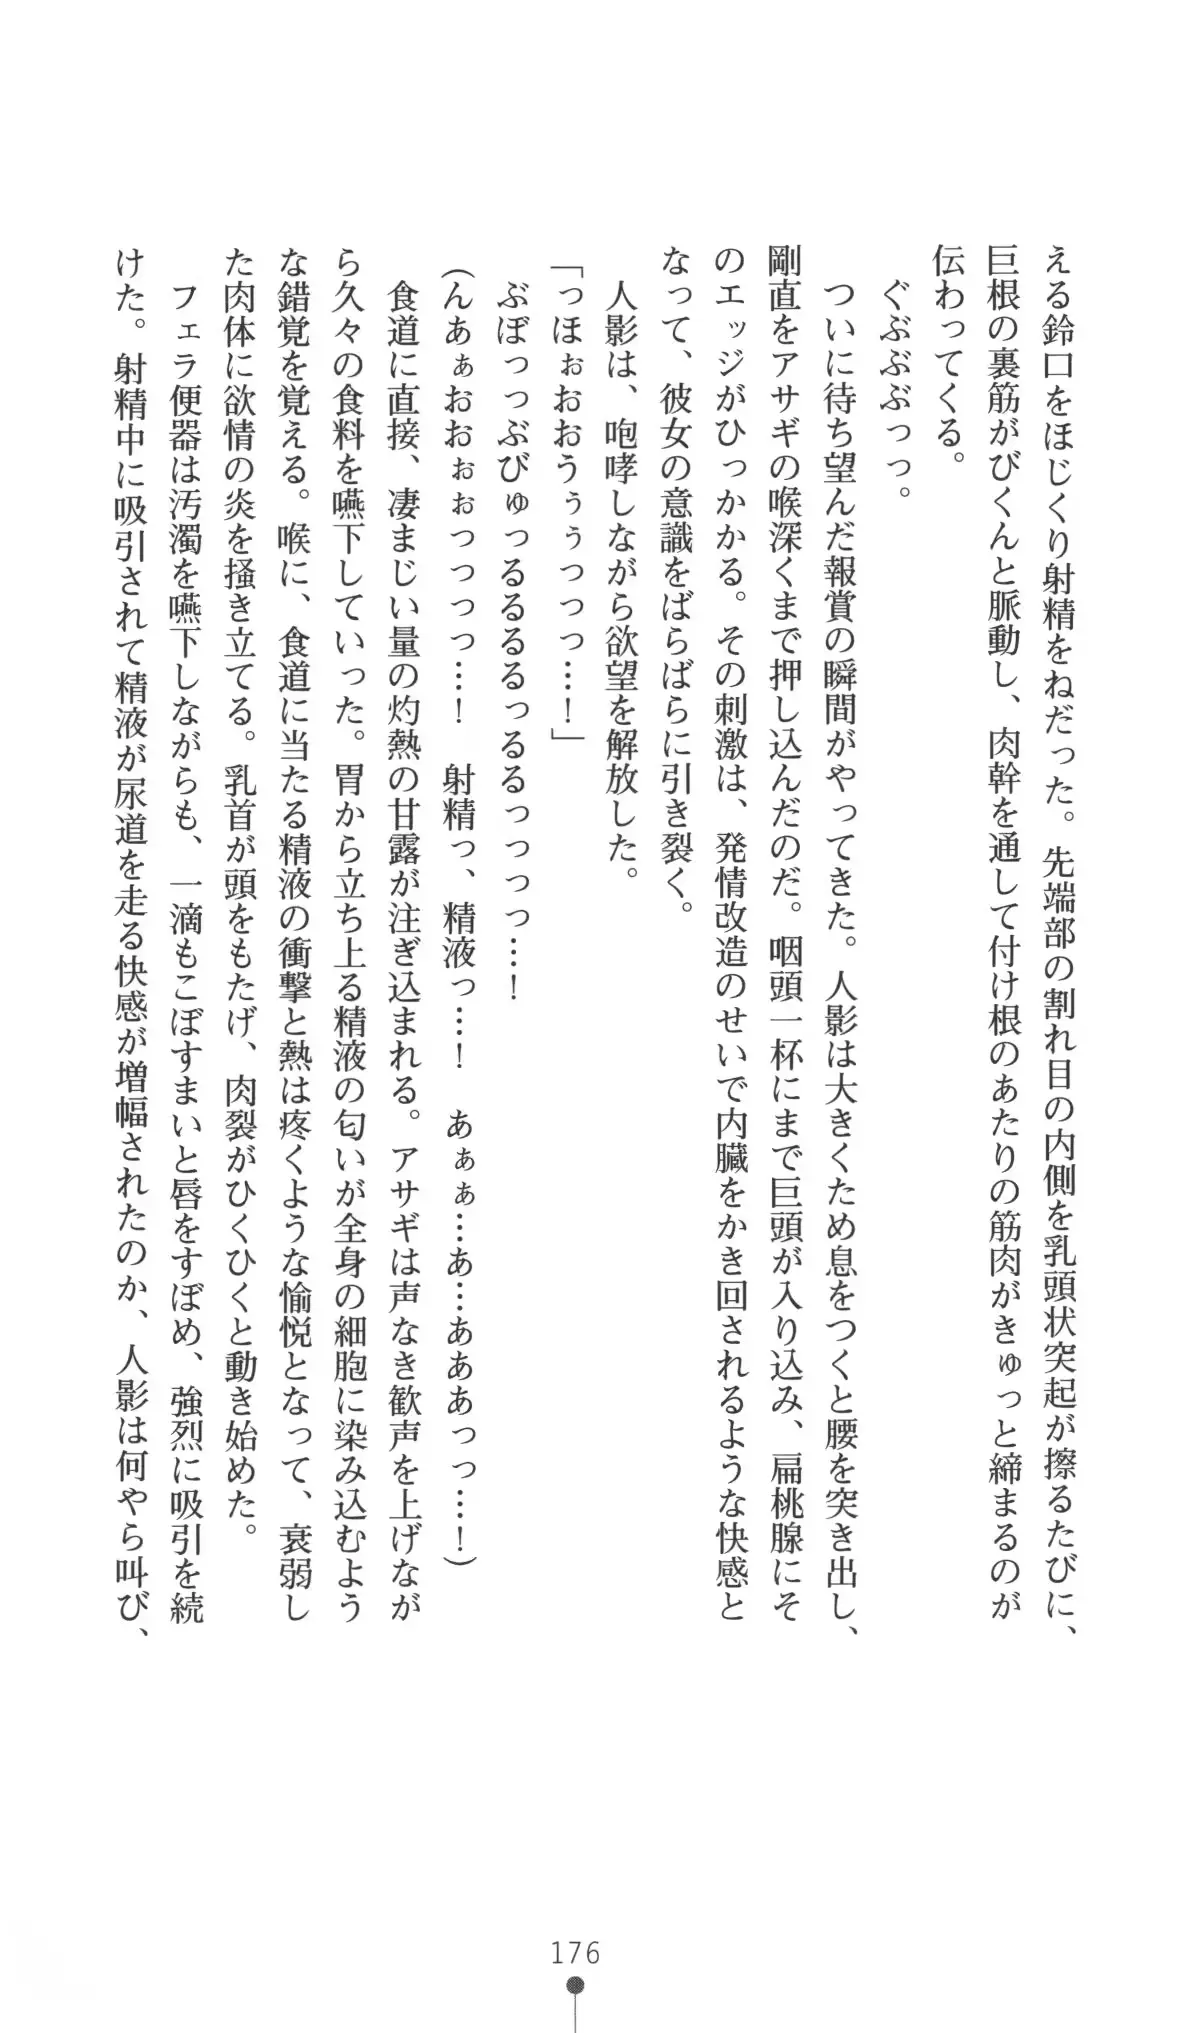 える鈴口をほじくり射精をねだった。先端部の割れ目の内側を乳頭状突起が擦るたびに、
巨根の裏筋がびくんと脈動し、肉幹を通して付け根のあたりの筋肉がきゅっと締まるのが
伝わってくる。
ぐぶぶぶっっ。
ついに待ち望んだ報賞の瞬間がやってきた。人影は大きくため息をつくと腰を突き出し、
剛直をアサギの喉深くまで押し込んだのだ。咽頭一杯にまで巨頭が入り込み、扁桃腺にそ
のエッジがひっかかる。その刺激は、発情改造のせいで内臓をかき回されるような快感と
なって、彼女の意識をばらばらに引き裂く。
人影は、咆哮しながら欲望を解放した。
「っほぉおおうぅぅっっっ…！」
ぶぼっっぶびゅっるるるるっるるっっっっ…！
（んあぁおおぉぉっっっっ…！　射精っ、精液っ…！　あぁぁ…あ…あああっっ…！）
食道に直接、凄まじい量の灼熱の甘露が注ぎ込まれる。アサギは声なき歓声を上げなが
ら久々の食料を嚥下していった。胃から立ち上る精液の匂いが全身の細胞に染み込むよう
な錯覚を覚える。喉に、食道に当たる精液の衝撃と熱は疼くような愉悦となって、衰弱し
た肉体に欲情の炎を掻き立てる。乳首が頭をもたげ、肉裂がひくひくと動き始めた。
フェラ便器は汚濁を嚥下しながらも、一滴もこぼすまいと唇をすぼめ、強烈に吸引を続
けた。射精中に吸引されて精液が尿道を走る快感が増幅されたのか、人影は何やら叫び、
176